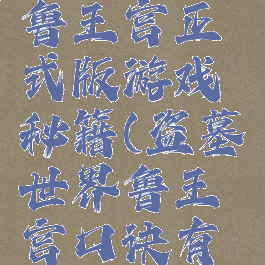 鲁王宫正
式版游戏
秘籍(盗墓
世界鲁王
宫口诀有